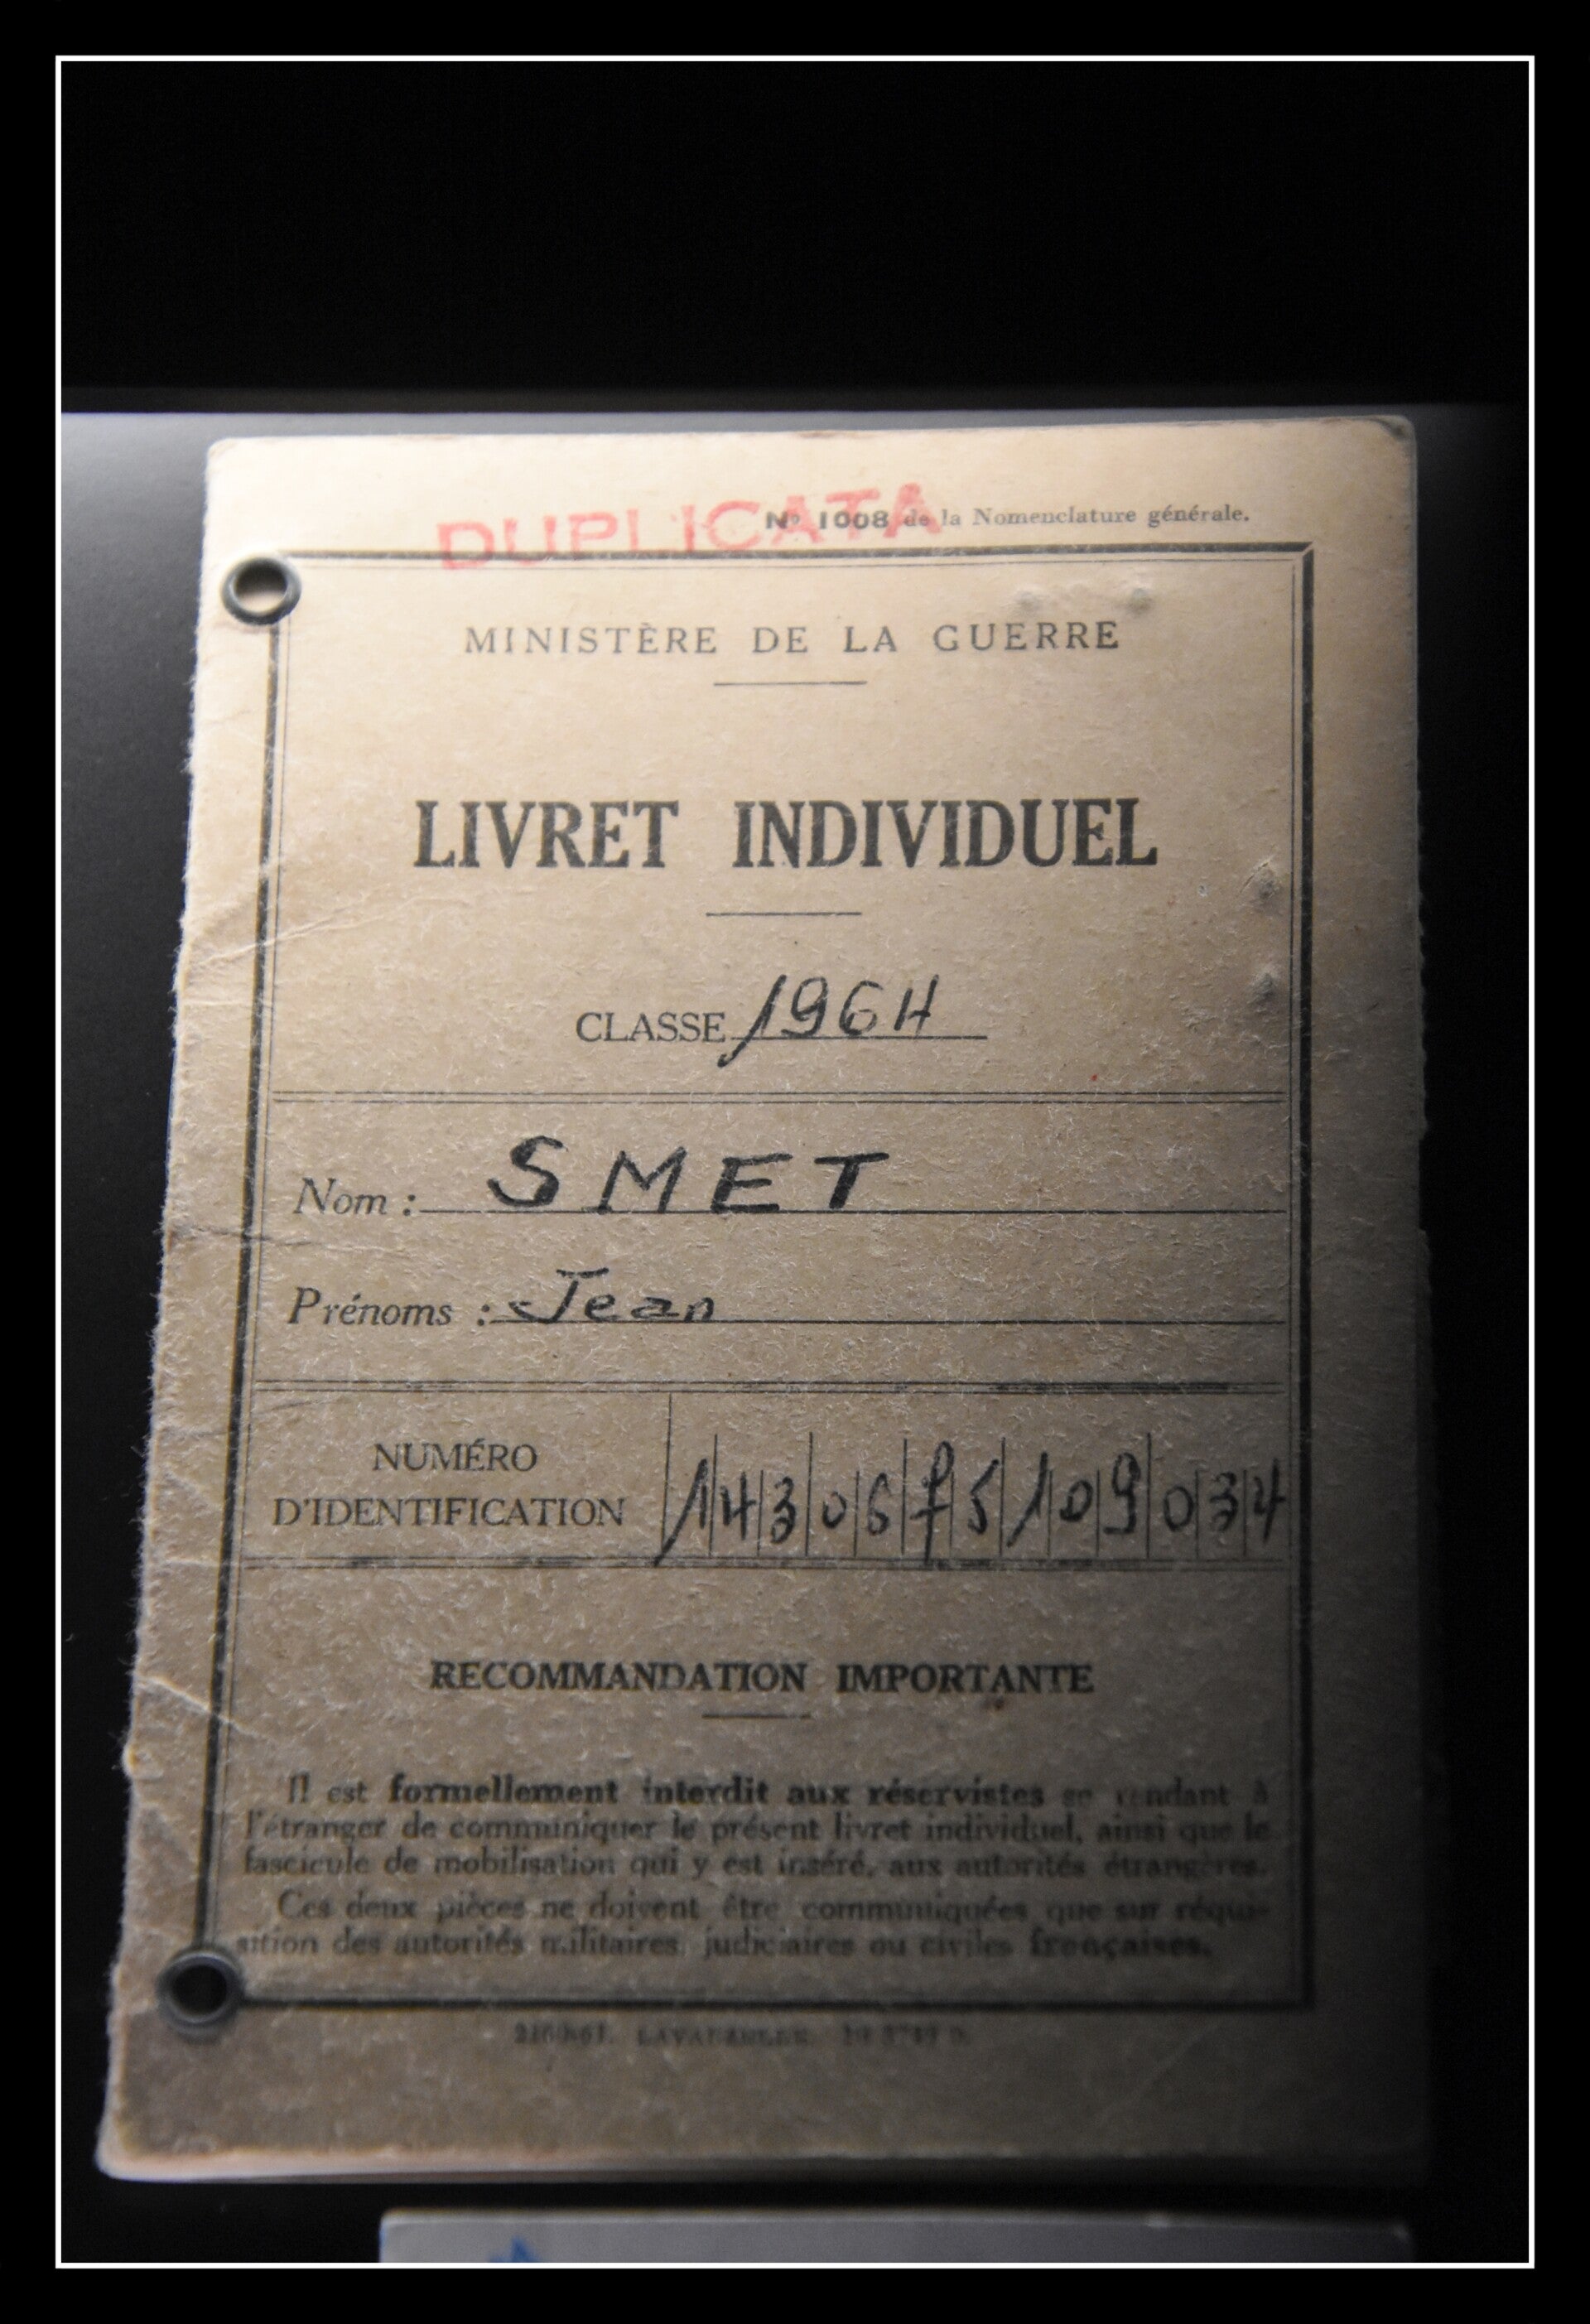 DUPLICATA
No 1008 de la Nomenclature générale.
MINISTÈRE DE LA GUERRE
LIVRET INDIVIDUEL
CLASSE 1964
Nom : SMET
Prénoms : Jean
NUMÉRO
D'IDENTIFICATION
1430675109034
RECOMMANDATION IMPORTANTE
Il est formellement interdit aux réservistes se rendant à
l'étranger de communiquer le présent livret individuel, ainsi que le
fascicule de mobilisation qui y est inséré, aux autorités étrangères.
Ces deux pièces ne doivent être communiquées que sur réqui-
sition des autorités militaires, judiciaires ou civiles françaises.